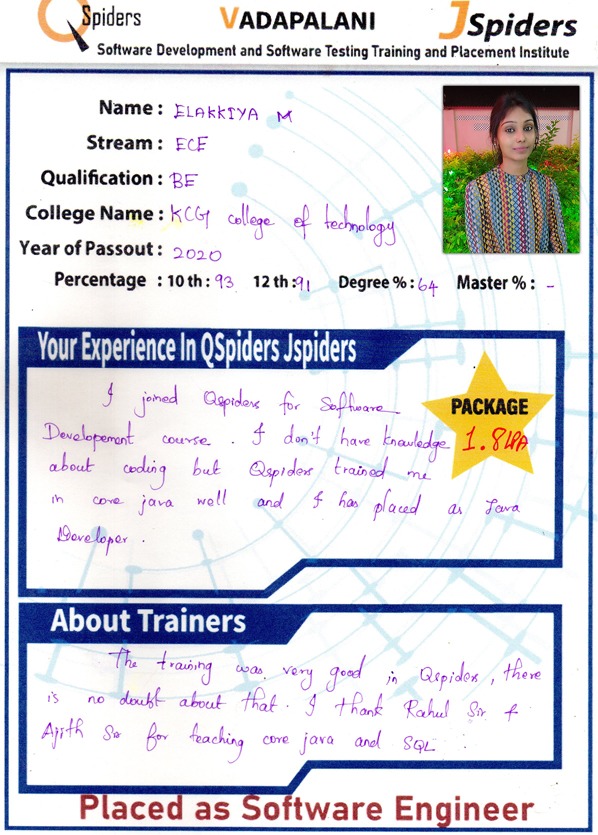 QSpiders VADAPALANI JSpiders
Software Development and Software Testing Training and Placement Institute
Name : ELAKKIYA M
Stream : ECE
Qualification : BE
College Name : KCG college of technology
Year of Passout : 2020
Percentage : 10 th : 93 12 th : 91 Degree % : 64 Master % : -
Your Experience In QSpiders Jspiders
I joined Qspiders for Software
Developement course. I don't have knowledge
about coding but Qspiders trained me
in core java well and I has placed as Java
Developer.
PACKAGE
1.8 LPA
About Trainers
The training was very good in Qspiders, there
is no doubt about that. I thank Rahul Sir &
Ajith Sir for teaching core java and SQL
Placed as Software Engineer